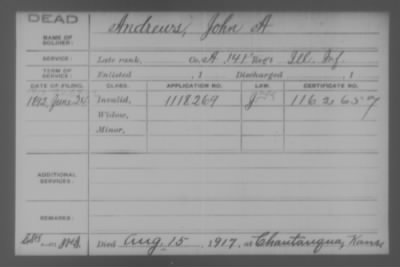 DEAD
NAME OF SOLDIER: Andrews, John A
SERVICE: Late rank, Co. A 141" Reg't Ill. Inf.
TERM OF SERVICE: Enlisted , 1 Discharged , 1
DATE OF FILING. CLASS. APPLICATION NO. LAW. CERTIFICATE NO.
1892 June 24 Invalid, 1118269 J 1162657
Widow,
Minor,
ADDITIONAL SERVICES:
REMARKS:
Died Aug. 15, 1917, at Chautauqua, Kans